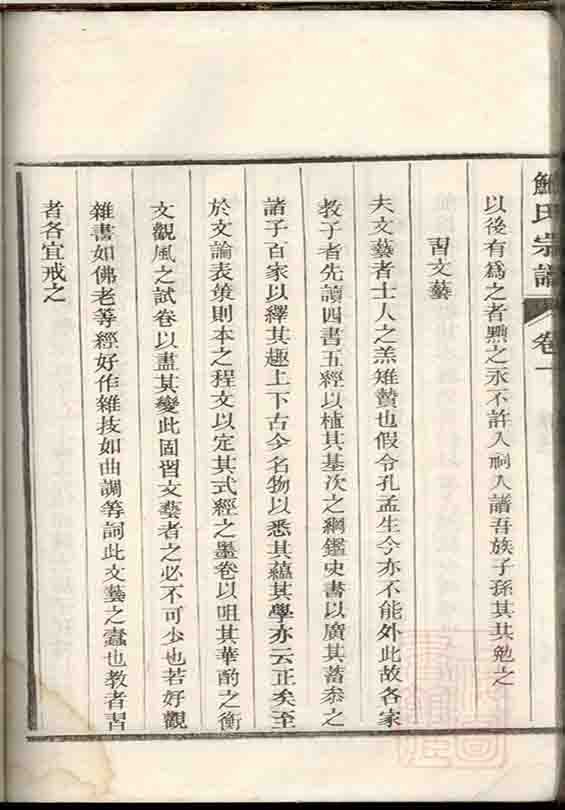 鮑氏宗譜 卷一
以後有爲之者黜之永不許入祠入譜吾族子孫其共勉之
習文藝
夫文藝者士人之羔雉贄也假令孔孟生今亦不能外此故各家
教子者先讀四書五經以植其基次之綱鑑史書以廣其蓄叅之
諸子百家以繹其趣上下古今名物以悉其蘊其學亦云正矣至
於文論表策則本之程文以定其式經之墨卷以咀其華酌之衡
文觀風之試卷以盡其變此固習文藝者之必不可少也若好觀
雜書如佛老等經好作雜技如曲調等詞此文藝之蠹也教者習
者各宜戒之